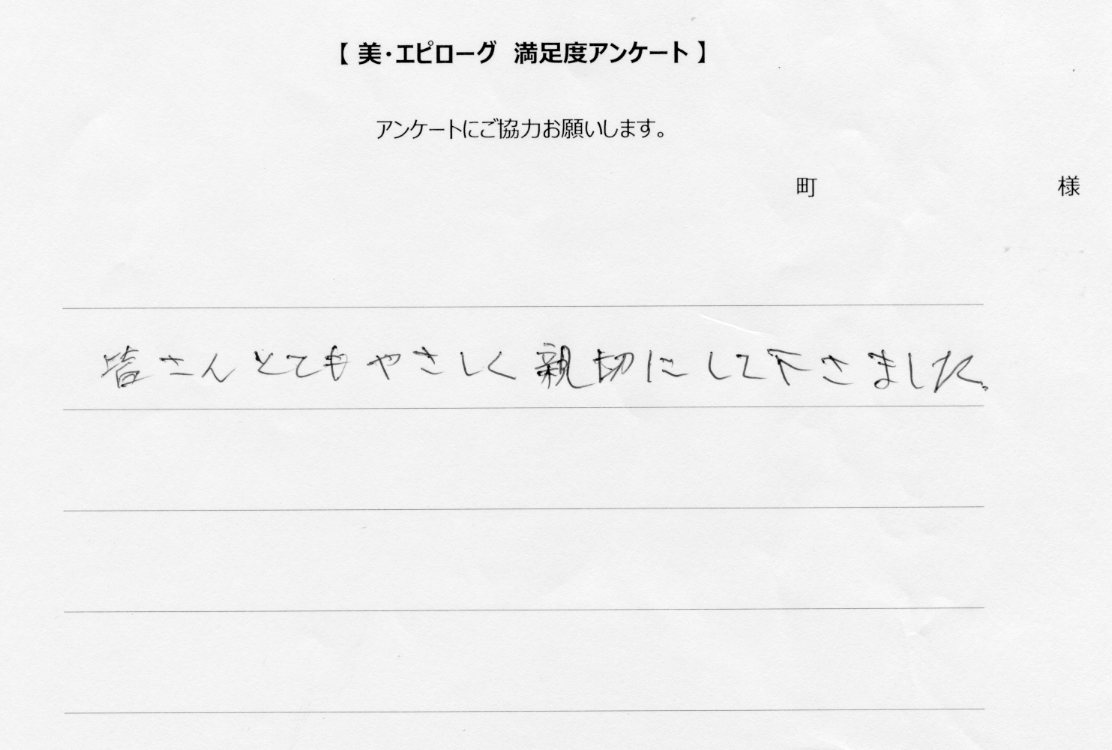 【 美・エピローグ 満足度アンケート 】
アンケートにご協力お願いします。
町 様
皆さんとてもやさしく親切にして下さました。